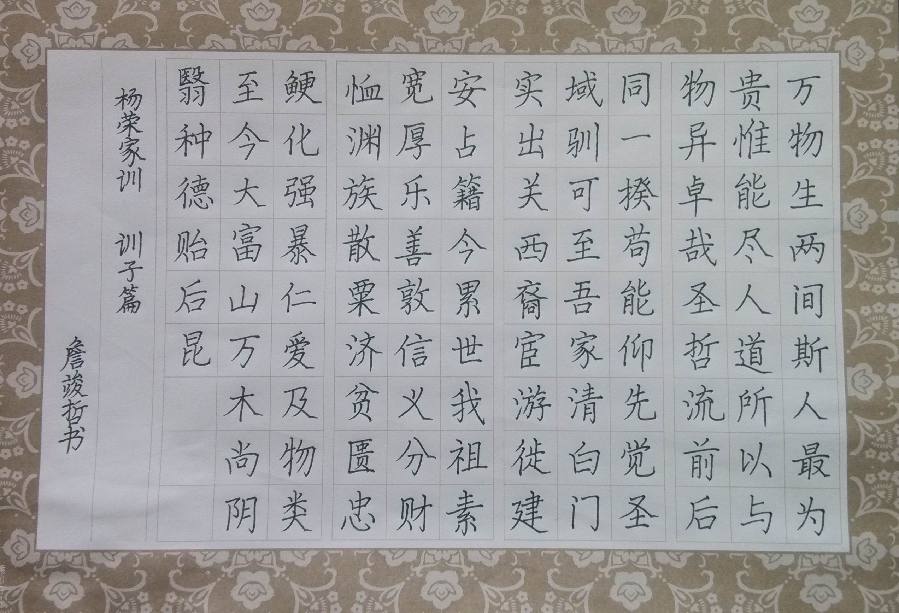 万物生两间斯人最为
贵惟能尽人道所以与
物异卓哉圣哲流前后
同一揆苟能仰先觉圣
域驯可至吾家清白门
实出关西裔宦游徙建
安占籍今累世我祖素
宽厚乐善敦信义分财
恤渊族散粟济贫匮忠
鲠化强暴仁爱及物类
至今大富山万木尚阴
翳种德贻后昆
杨荣家训 训子篇
詹竣哲书